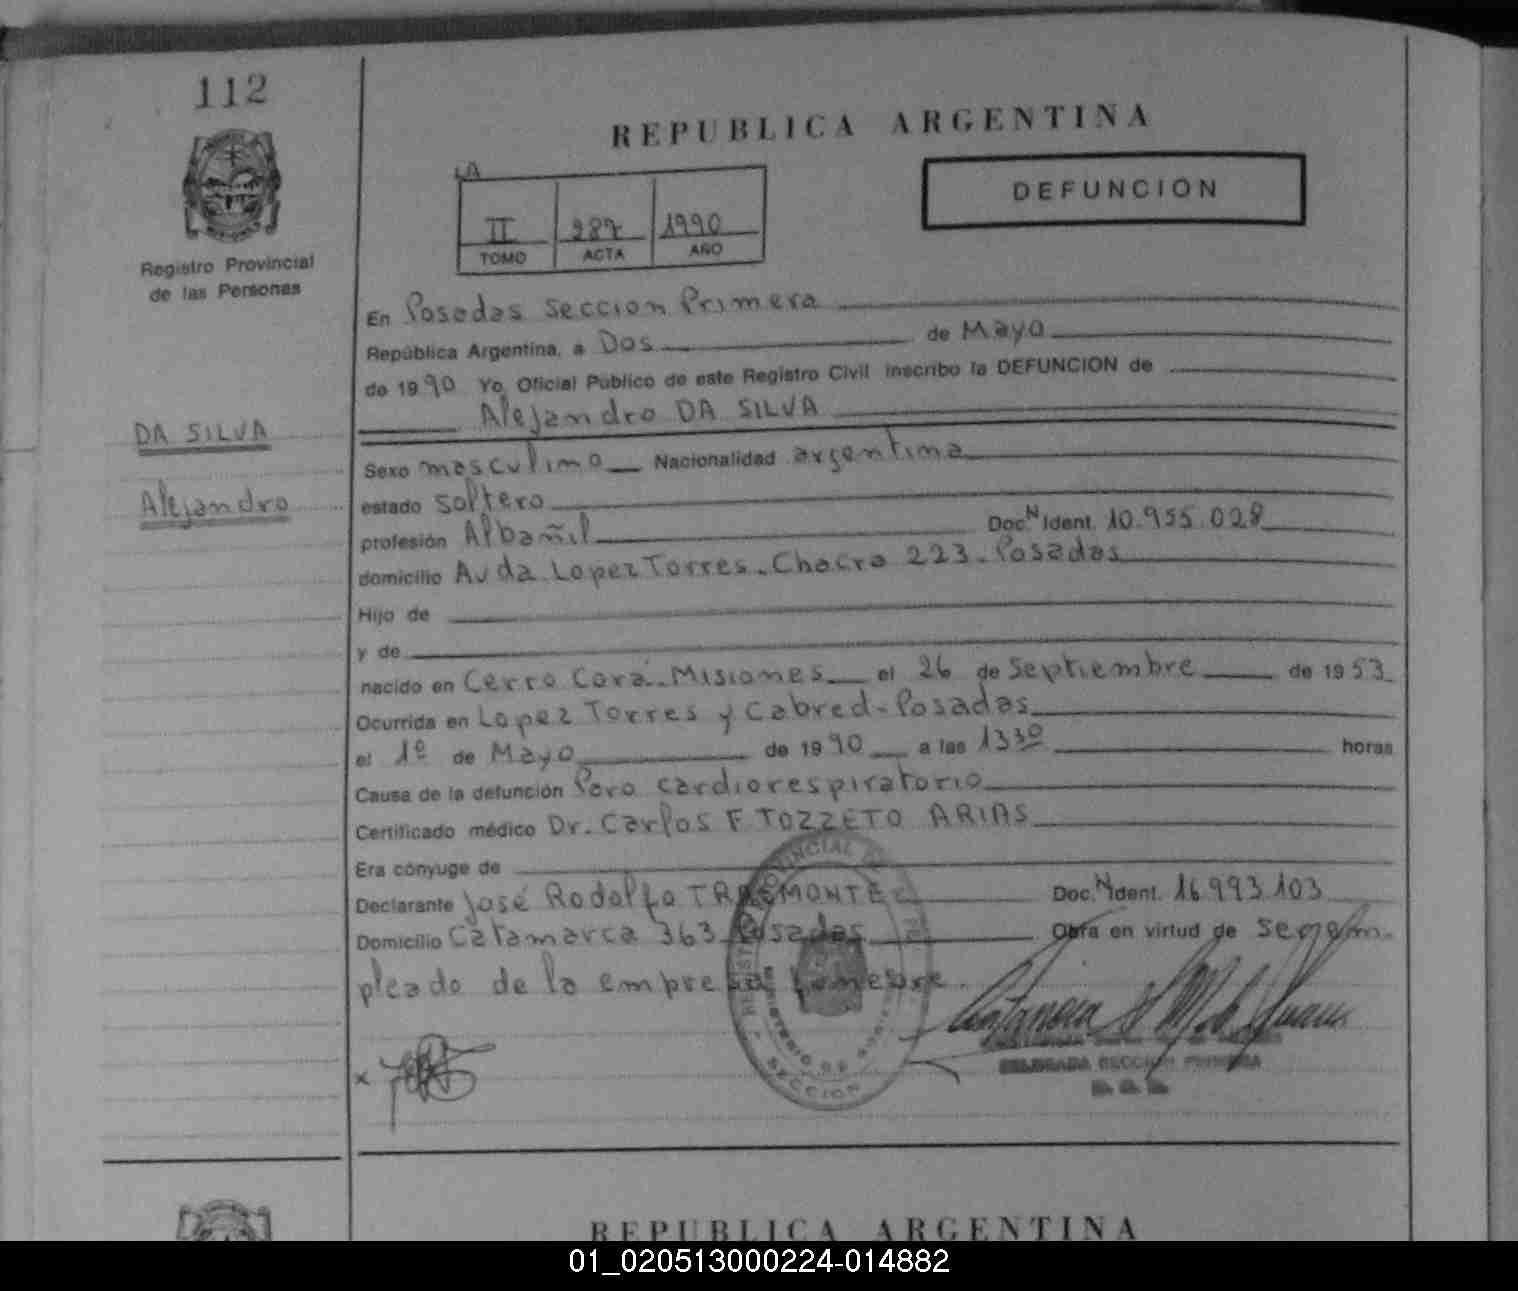 112
REPUBLICA ARGENTINA
DEFUNCION
LA
II 287 1990
TOMO ACTA AÑO
Registro Provincial
de las Personas
En Posadas seccion Primera
República Argentina, a Dos de Mayo
de 1990 Yo, Oficial Público de este Registro Civil inscribo la DEFUNCION de
Alejandro DA SILVA
DA SILVA
Alejandro
Sexo masculino Nacionalidad argentina
estado soltero
profesión Albañil Doc. N Ident. 10.955.028
domicilio Avda. Lopez Torres. Chacra 223. Posadas
Hijo de
y de
nacido en Cerro Corá. Misiones el 26 de Septiembre de 1953
Ocurrida en Lopez Torres y Cabred-Posadas
el 1º de Mayo de 1990 a las 13 30 horas
Causa de la defunción Paro cardiorespiratorio
Certificado médico Dr. Carlos F. TOZZETO ARIAS
Era cónyuge de
Declarante José Rodolfo Doc. N Ident. 16.993.103
Domicilio Catamarca 363 Posadas Obra en virtud de ser em-
pleado de la empresa funebre.
REGISTRO PROVINCIAL DE
MINISTERIO DE
SECCION
x
DELEGADA SECCION PRIMERA
REPUBLICA ARGENTINA
01_020513000224-014882